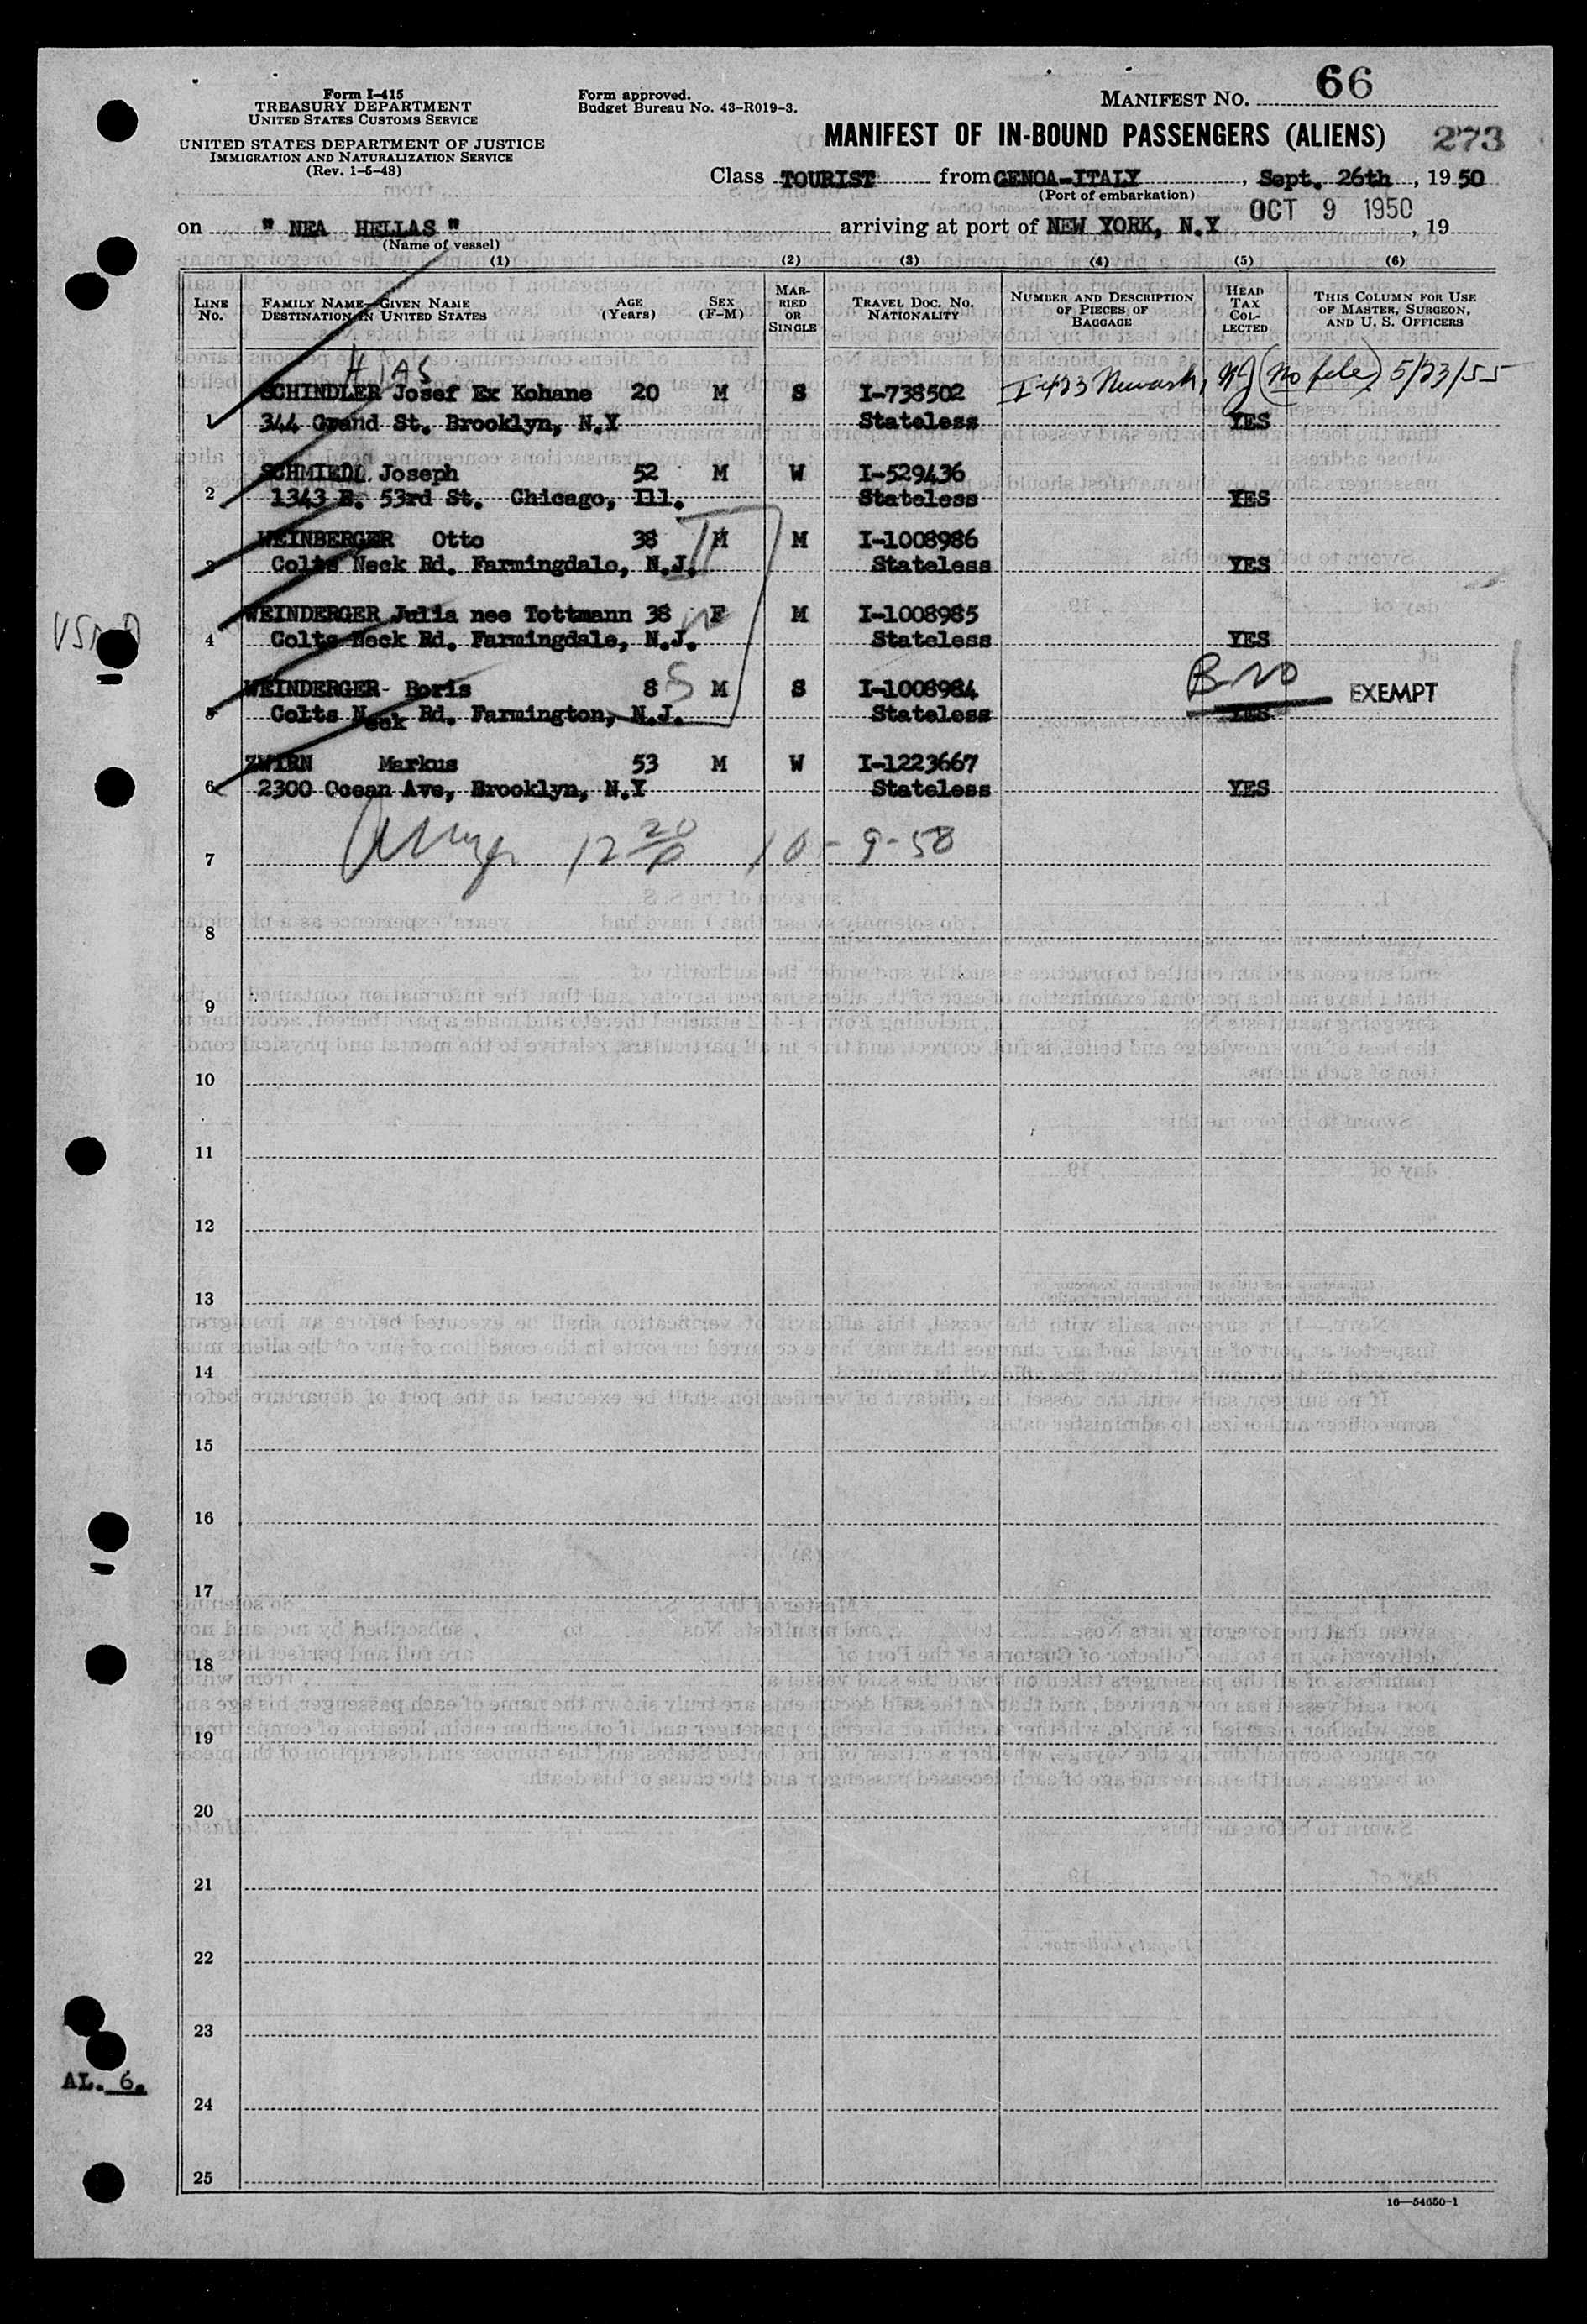 66
Form I-415
TREASURY DEPARTMENT
UNITED STATES CUSTOMS SERVICE
UNITED STATES DEPARTMENT OF JUSTICE
IMMIGRATION AND NATURALIZATION SERVICE
(Rev. 1-5-48)
Form approved.
Budget Bureau No. 43-R019-3.
MANIFEST NO.
MANIFEST OF IN-BOUND PASSENGERS (ALIENS) 273
Class TOURIST from GENOA-ITALY, Sept. 26th, 19 50
(Port of embarkation)
on " NEA HELLAS " arriving at port of NEW YORK, N.Y OCT 9 1950, 19
(Name of vessel)
(1) (2) (3) (4) (5) (6)
LINE NO. FAMILY NAME—GIVEN NAME DESTINATION IN UNITED STATES AGE (Years) SEX (F-M) MARRIED OR SINGLE TRAVEL DOC. NO. NATIONALITY NUMBER AND DESCRIPTION OF PIECES OF BAGGAGE HEAD TAX COLLECTED THIS COLUMN FOR USE OF MASTER, SURGEON, AND U. S. OFFICERS
HIAS
SCHINDLER Josef Ex Kohane 20 M S I-738502 I-423 Newark, NJ (no file) 5/23/55
1 344 Grand St. Brooklyn, N.Y Stateless YES
SCHMIEDL Joseph 52 M W I-529436
2 1343 E. 53rd St. Chicago, Ill. Stateless YES
WEINBERGER Otto 38 M M I-1008986
3 Colts Neck Rd. Farmingdale, N.J. Stateless YES
WEINDERGER Julia nee Tottmann 38 F M I-1008985
4 Colts Neck Rd. Farmingdale, N.J. Stateless YES
WEINDERGER- Boris 8 M S I-1008984 EXEMPT
5 Colts Neck Rd. Farmington, N.J. Stateless YES
ZWIRN Markus 53 M W I-1223667
6 2300 Ocean Ave, Brooklyn, N.Y Stateless YES
7 12 20 10-9-50
8
9
10
11
12
13
14
15
16
17
18
19
20
21
22
23
AL. 6.
24
25
16—54650-1